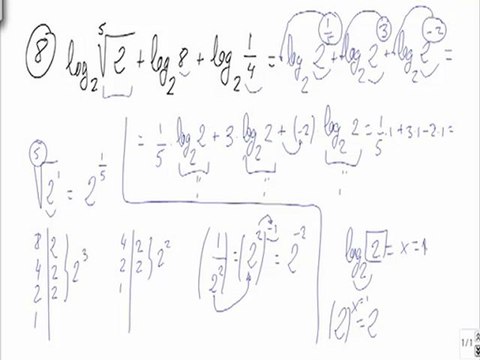 8 log₂ ⁵√2 + log₂ 8 + log₂ 1/4 = log₂ 2^(1/5) + log₂ 2^3 + log₂ 2^(-2) =
= 1/5 · log₂ 2 + 3 log₂ 2 + (-2) log₂ 2 = 1/5 · 1 + 3·1 - 2·1 =
⁵√2¹ = 2^(1/5)
8 | 2
4 | 2
2 | 2
1 |
} 2³
4 | 2
2 | 2
1 |
} 2²
(1/2²) = (2²)^(-1) = 2^(-2)
log₂ 2 = x = 1
(2)^(x=1) = 2
1/1